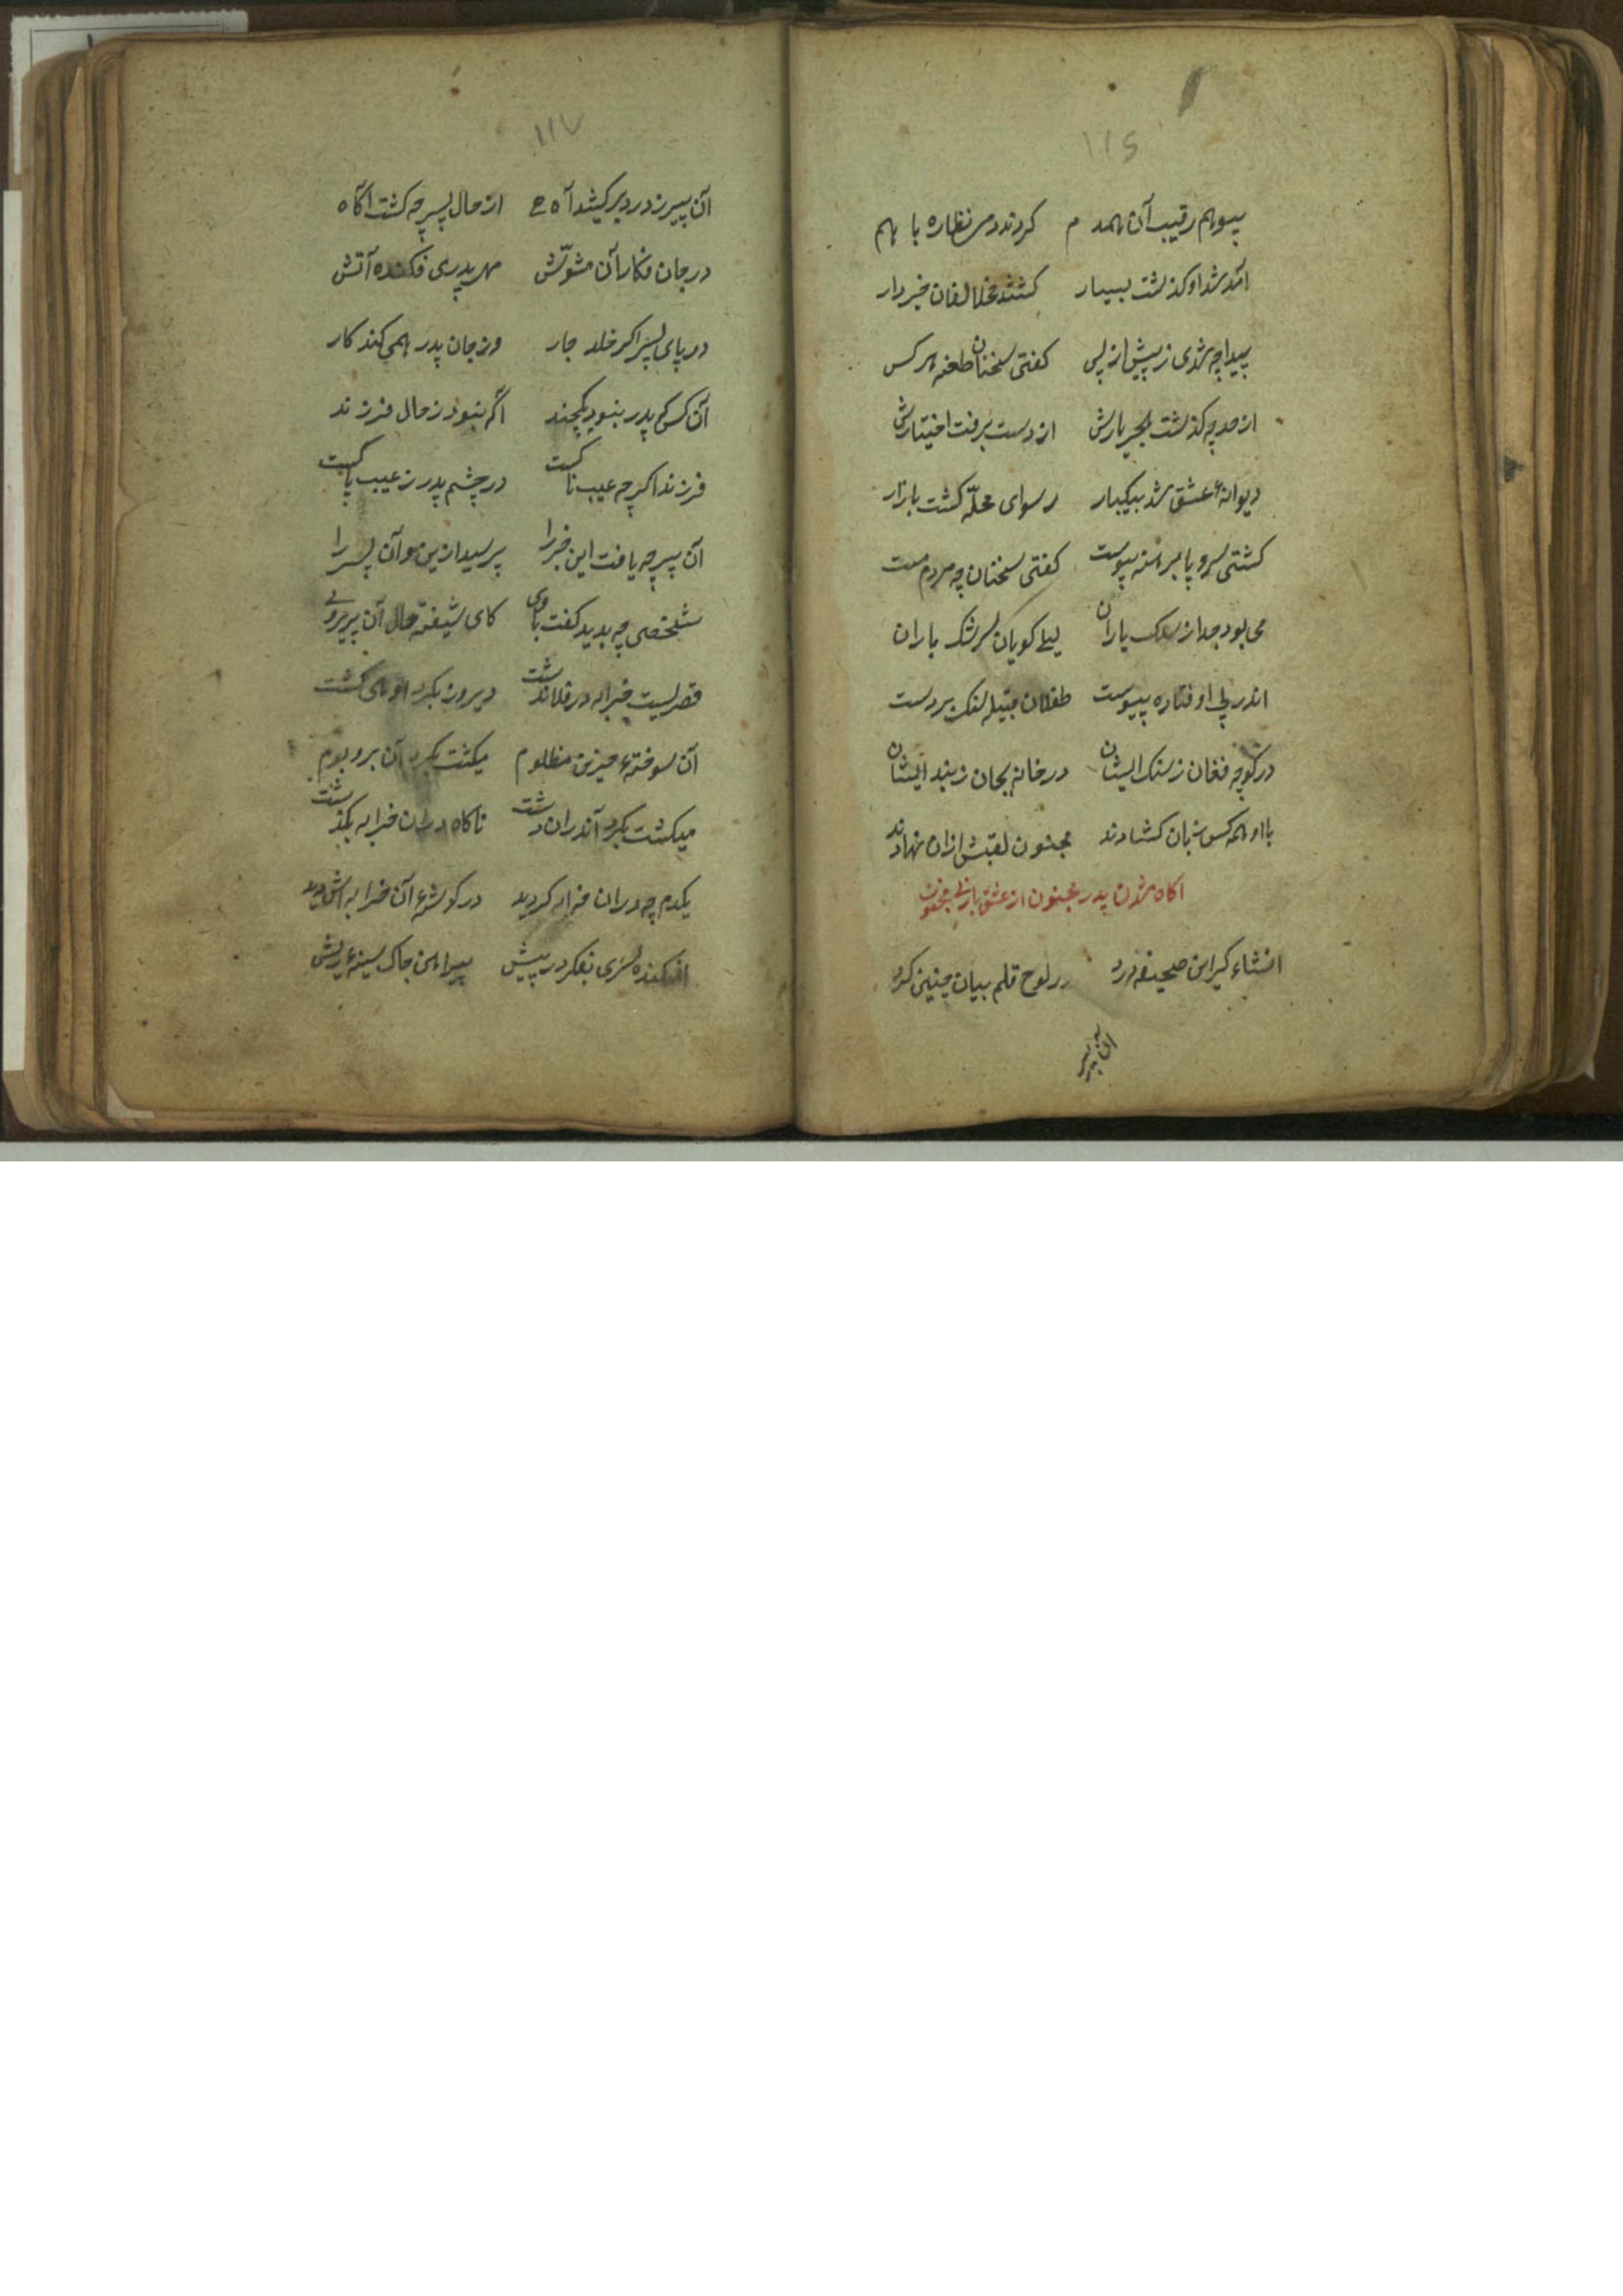 ۱۱۶
پیوهم رقیب آن همدم کردند دمی نظاره با هم
آمد شد او کذشت بسیار کشتند مخالفان خبردار
پیدا چه شدی ز پیش از پس کفتی سخنان طعنه هر کس
از حد چه کذشت هجر یارش از دست برفت اختیارش
دیوانهٔ عشق شد بیکبار رسوای محلّه کشت بازار
کشتی سر و پا برهنه پیوست کفتی سخنان چه مردم مست
می بود جدا ز سلک یاران لیلی کویان سرشک باران
اندر پی او فتاده پیوست طفلان قبیله سنک بر دست
در کوچه فغان ز سنک ایشان در خانه بجان ز پند ایشان
با او همه کس زبان کشادند مجنون لقبش ازان نهادند
اکاه شدن پدر مجنون از عشق بازی مجنون
انشاء کر این صحیفه درد بر لوح قلم بیان چنین کرد
آن پیر
۱۱۷
آن پیر ز درد بر کشید آه از حال پسر چه کشت آکاه
در جان فکار آن مشوّش مهر پدری فکنده آتش
در پای پسر اکر خلد خار در جان پدر همی کند کار
آن کس که پدر نبود یکچند اکه نبود ز حال فرزند
فرزند اکر چه عیب ناکست در چشم پدر ز عیب پاکست
آن پیر چه یافت این خبر را پرسید ازین و آن پسر را
شخصی چه بدید کفت با وی کای شیفته حال آن پریروی
قصریست خرابه در فلان دشت دیروز بکرد او همی کشت
آن سوختهٔ حزین مظلوم میکشت بکرد آن بر و بوم
میکشت بکرد آندران دشت ناکاه دران خرابه بکذشت
یکدم چه دران خرابه کردید در کوشهٔ آن خرابه اش دید
افکنده سری بفکر در پیش پیراهن چاک سینهٔ ریش